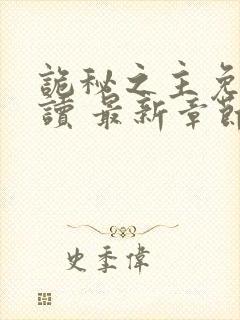 詭秘之主免
讀 最新章節
史季偉